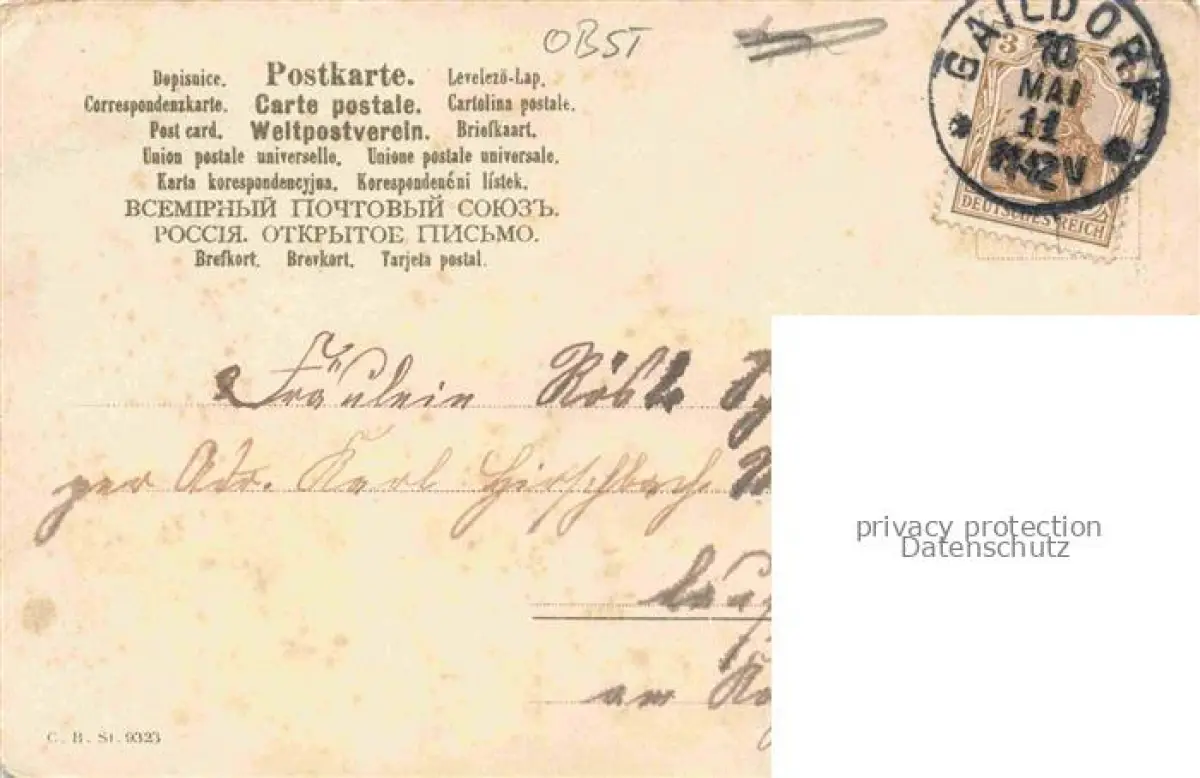 OBST
Dopisnice. Postkarte. Levelező-Lap.
Correspondenzkarte. Carte postale. Cartolina postale.
Post card. Weltpostverein. Briefkaart.
Union postale universelle. Unione postale universale.
Karta korespondencyjna. Korespondenčni lístek.
ВСЕМІРНЫЙ ПОЧТОВЫЙ СОЮЗЪ.
РОССІЯ. ОТКРЫТОЕ ПИСЬМО.
Brefkort. Brevkort. Tarjeta postal.
GAILDORF
10
MAI
11
11-12V
3
DEUTSCHES REICH
Fräulein
per Adr. Karl Hirschbach
am
privacy protection
Datenschutz
C. B. St. 9323